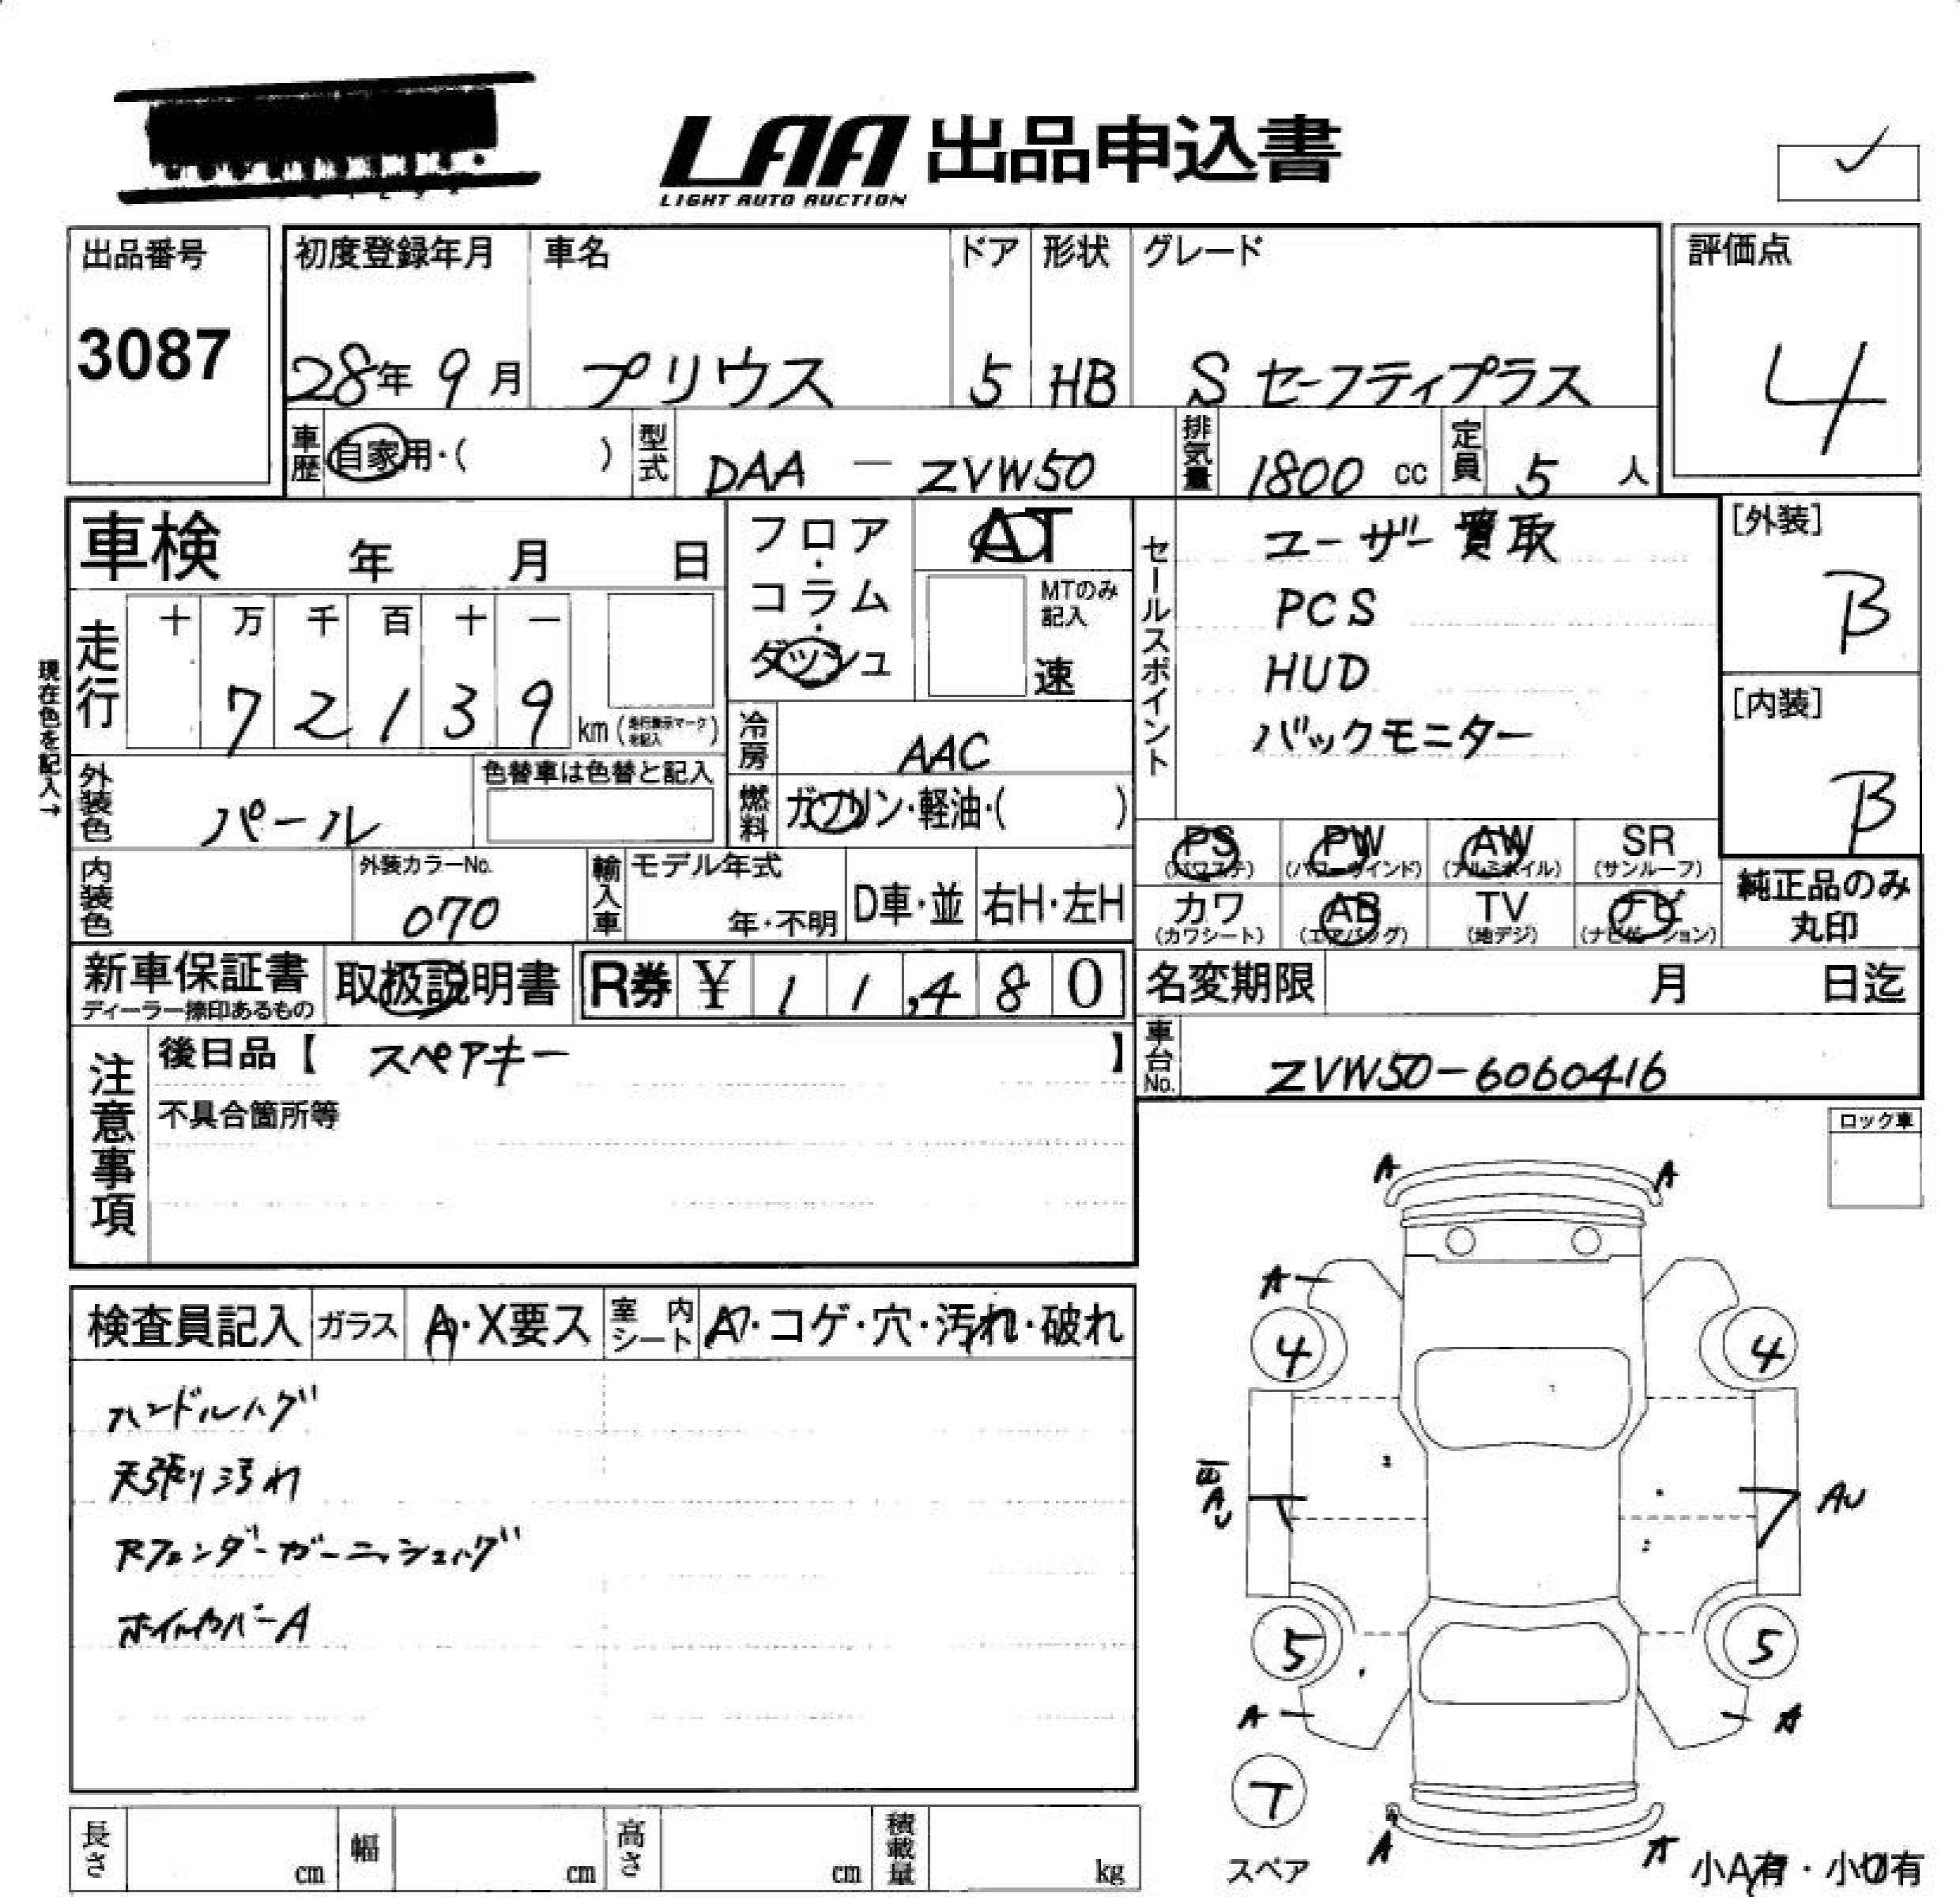 LAA 出品申込書
LIGHT AUTO AUCTION
出品番号
3087
初度登録年月
28年 9月
車名
プリウス
ドア
5
形状
HB
グレード
S セーフティプラス
評価点
4
車歴
自家用・( )
型式
DAA - ZVW50
排気量
1800 cc
定員
5 人
車検 年 月 日
フロア・コラム・ダッシュ
AT
MTのみ記入
速
セールスポイント
ユーザー買取
PCS
HUD
バックモニター
[外装]
B
[内装]
B
現在色を記入→
走行
十 万 千 百 十 一
7 2 1 3 9 km (走行表示マークを記入)
冷房
AAC
外装色
パール
色替車は色替と記入
燃料
ガソリン・軽油・( )
PS (パワステ)
PW (パワーウインド)
AW (アルミホイル)
SR (サンルーフ)
内装色
外装カラーNo.
070
輸入車
モデル年式
年・不明
D車・並
右H・左H
カワ (カワシート)
AB (エアバッグ)
TV (地デジ)
ナビ (ナビゲーション)
純正品のみ丸印
新車保証書
ディーラー捺印あるもの
取扱説明書
R券 ¥ 1 1,4 8 0
名変期限 月 日迄
注意事項
後日品【 スペアキー 】
不具合箇所等
車台No.
ZVW50-6060416
ロック車
検査員記入
ガラス
A・X要ス
室内シート
・コゲ・穴・汚れ・破れ
ハンドルハゲ
天張り汚れ
フェンダーガーニッシュハゲ
ホイルカバーA
A A
A
4 4
AU
AU
5 5
A A
T
スペア
A A
小A有・小U有
長さ cm
幅 cm
高さ cm
積載量 kg